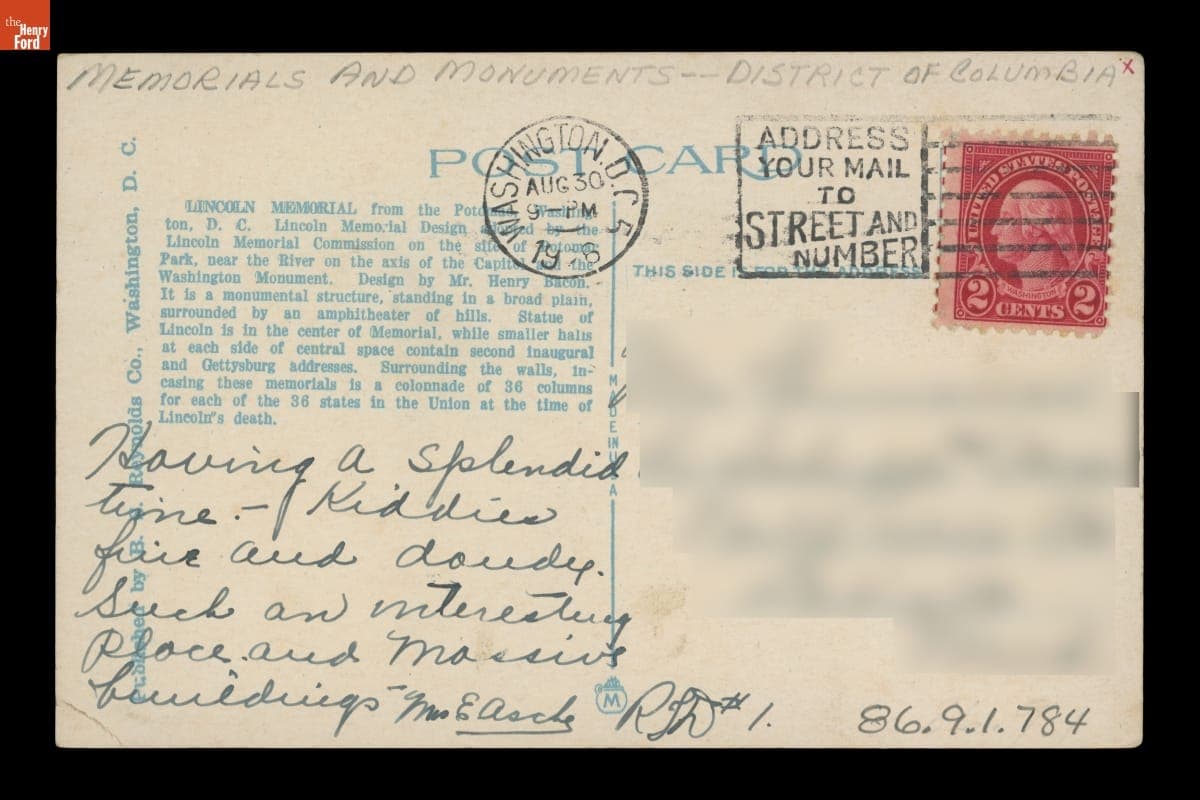 the
Henry
Ford
MEMORIALS AND MONUMENTS -- DISTRICT OF COLUMBIA x
POST CARD
WASHINGTON, D.C. 5
AUG 30
9-PM
19 8
ADDRESS
YOUR MAIL
TO
STREET AND
NUMBER
UNITED STATES POSTAGE
WASHINGTON
2 CENTS 2
THIS SIDE IS FOR THE ADDRESS
LINCOLN MEMORIAL from the Potomac, Washing-
ton, D. C. Lincoln Memorial Design adopted by the
Lincoln Memorial Commission on the site of Potomac
Park, near the River on the axis of the Capitol and the
Washington Monument. Design by Mr. Henry Bacon.
It is a monumental structure, standing in a broad plain,
surrounded by an amphitheater of hills. Statue of
Lincoln is in the center of Memorial, while smaller halls
at each side of central space contain second inaugural
and Gettysburg addresses. Surrounding the walls, in-
casing these memorials is a colonnade of 36 columns
for each of the 36 states in the Union at the time of
Lincoln's death.
Published by B. Reynolds Co., Washington, D. C.
MADE IN U S A
Having a splendid
time. - Kiddies
fine and dandy.
Such an interesting
place and massive
buildings - Mrs E Asche
M
RFD #1.
86.9.1.784